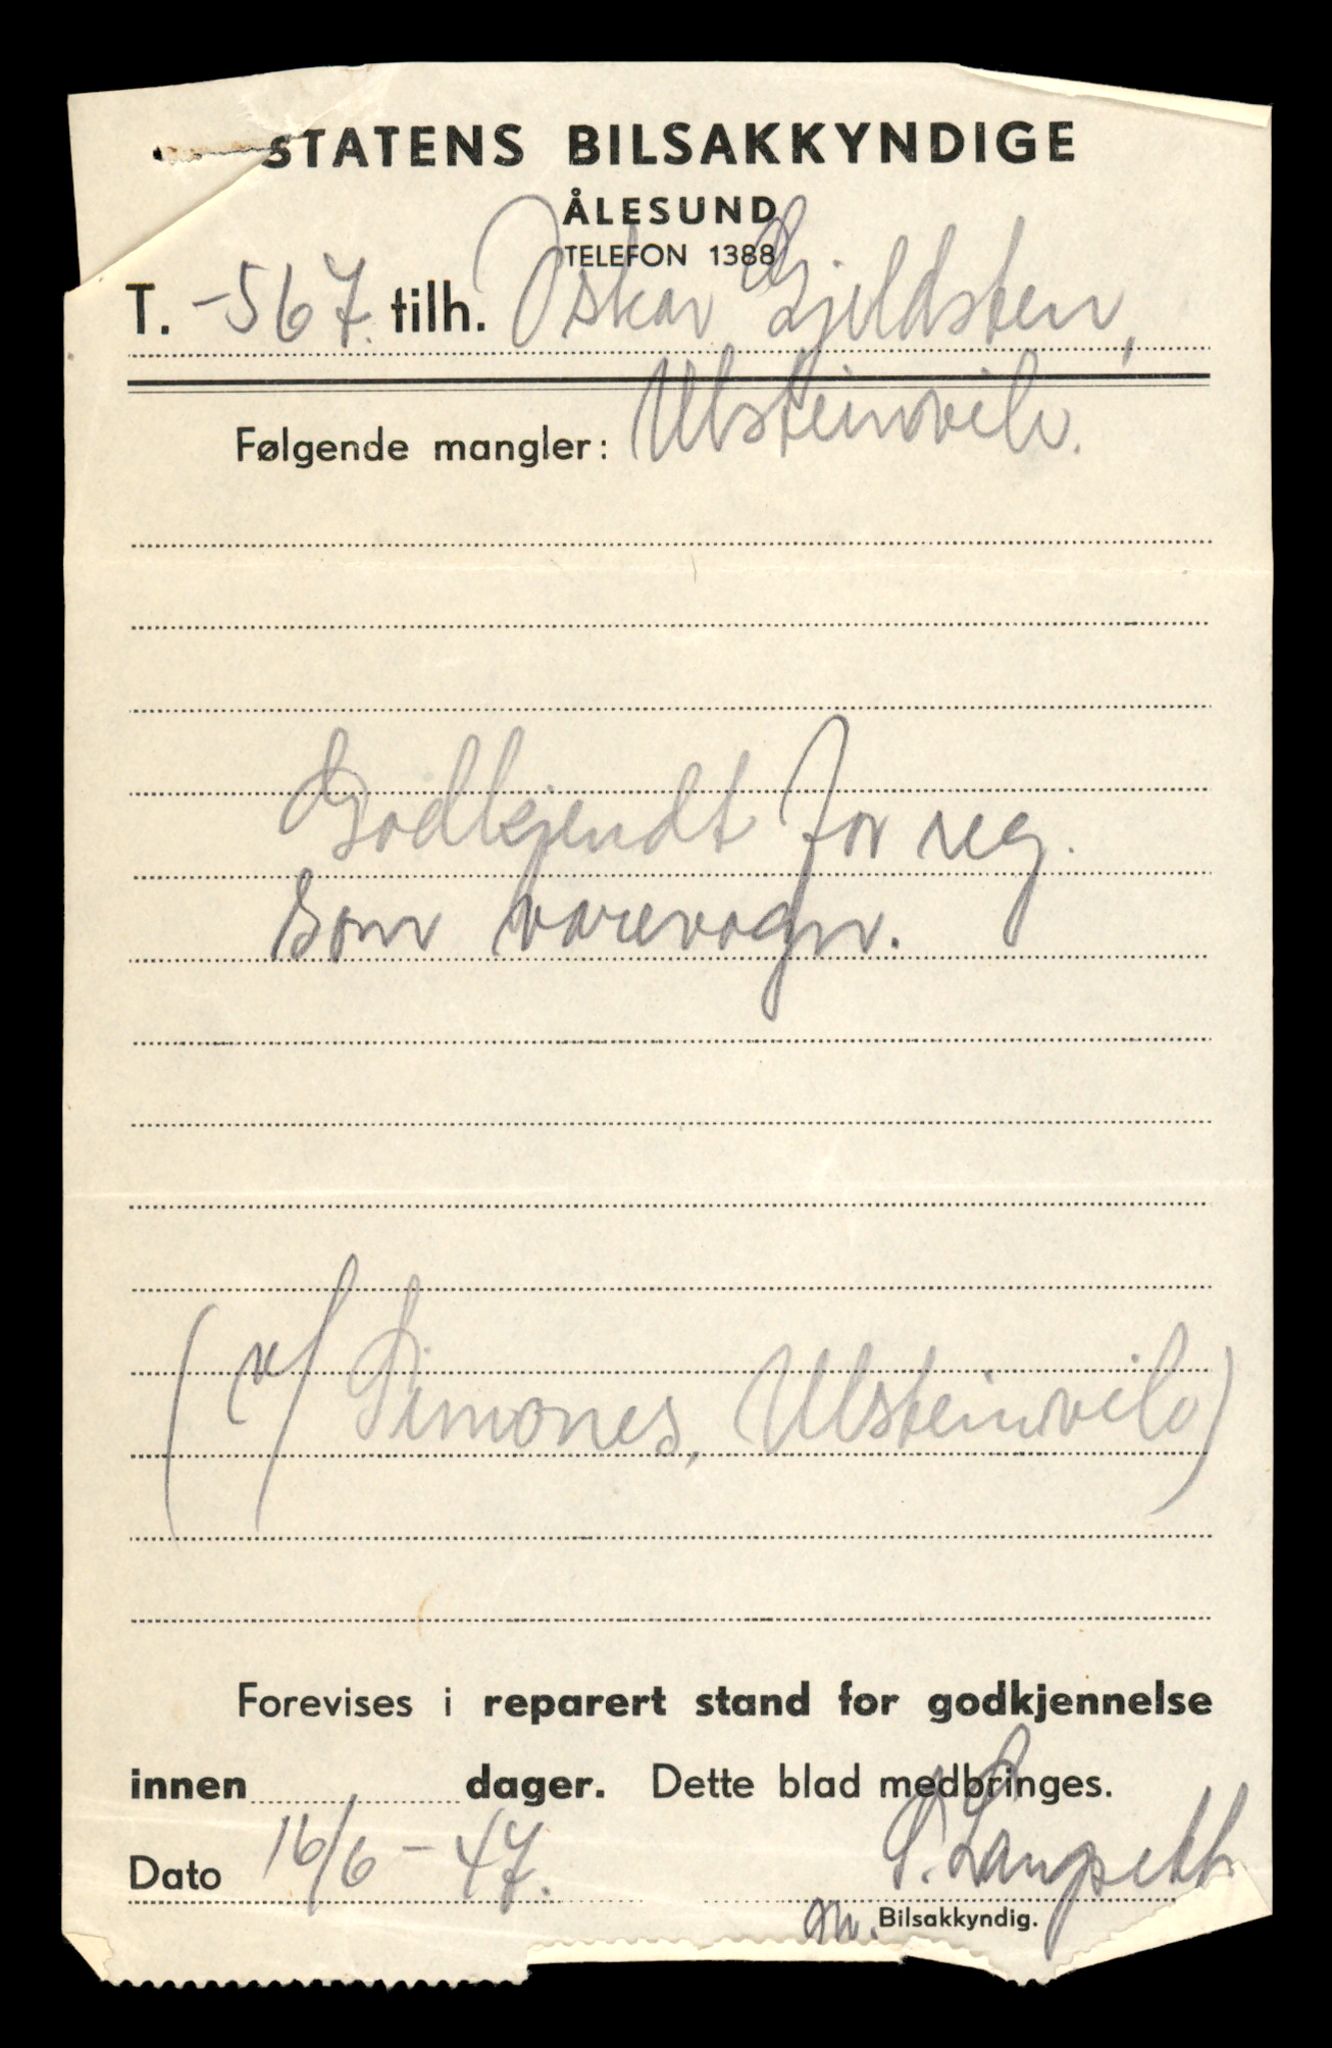 STATENS BILSAKKYNDIGE
ÅLESUND
TELEFON 1388
T. -567. tilh. Oskar Gjeldsten,
Følgende mangler: Ulsteinvik.
Godkjendt for reg.
som varevogn.
(v/ Simones, Ulsteinvik)
Forevises i reparert stand for godkjennelse
innen dager. Dette blad medbringes.
Dato 16/6 - 47. S. Langseth
Bilsakkyndig.